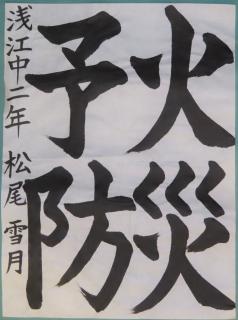 火災
予防
浅江中二年 松尾 雪月